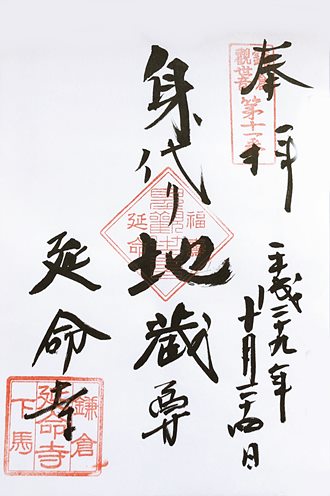 奉拝
平成二十九年
十月二十四日
身代り地蔵尊
延命寺
鎌倉
観世音
第十一
福
延命
鎌倉
延命寺
下馬